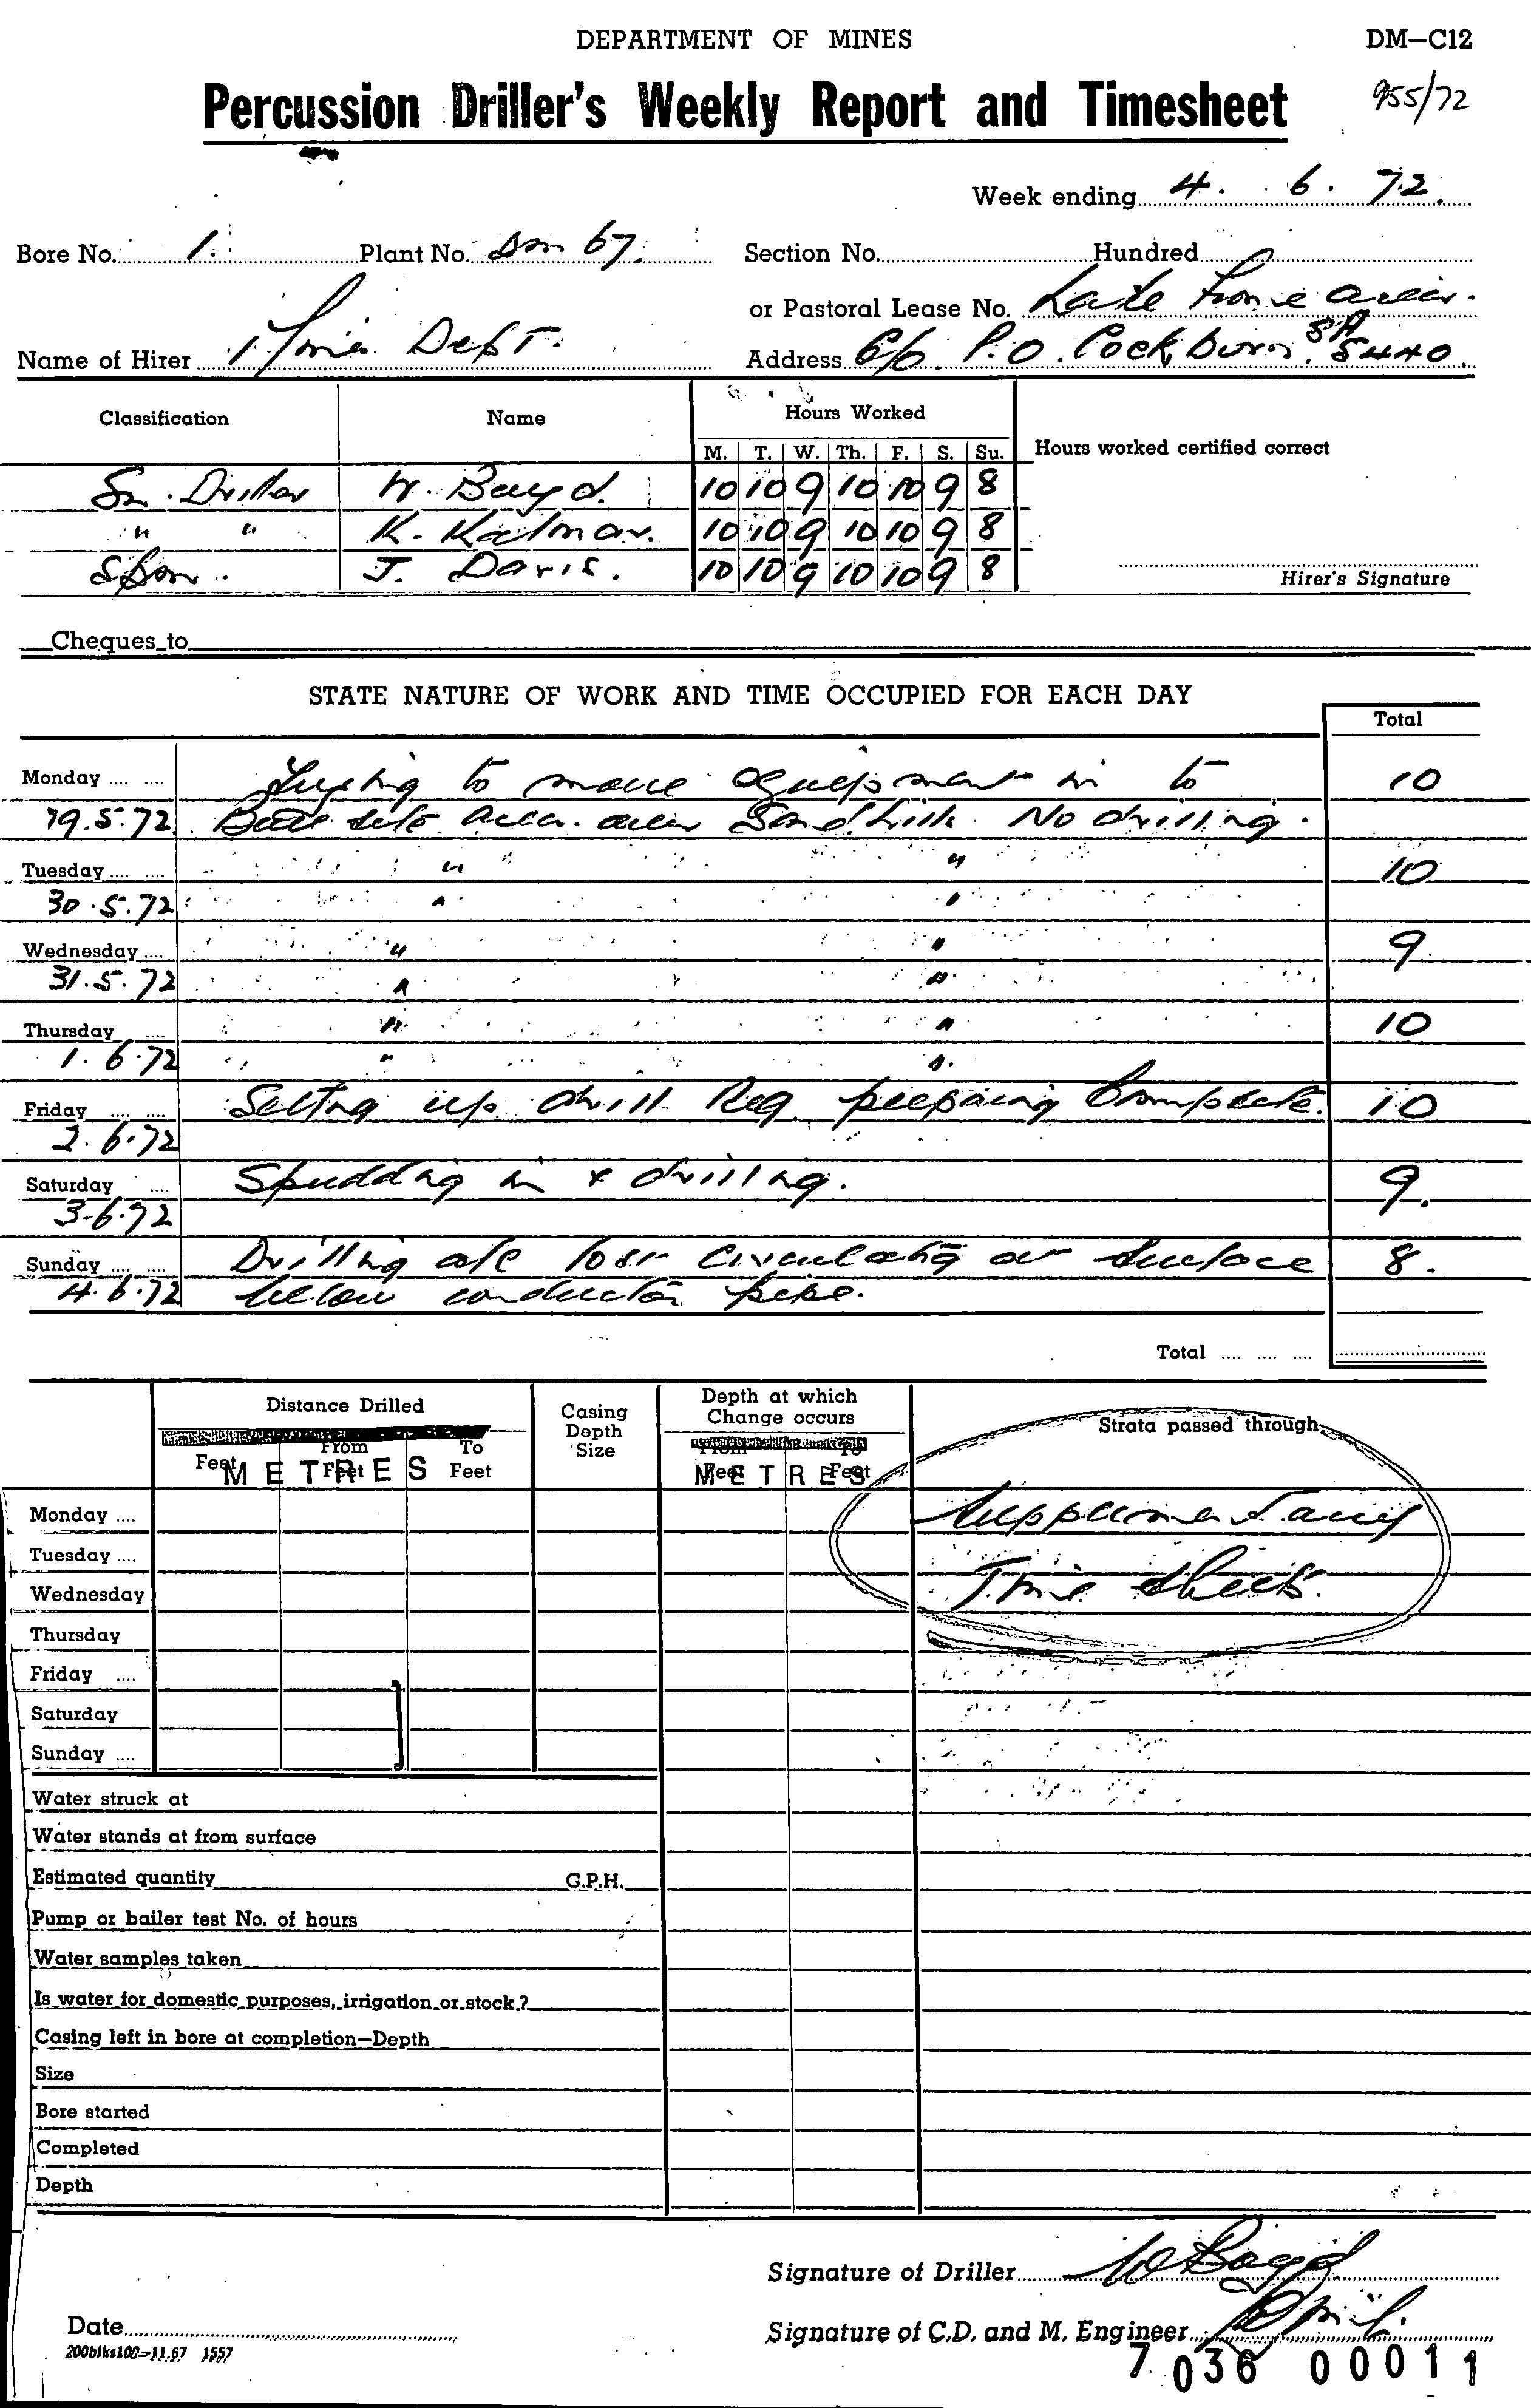 DEPARTMENT OF MINES DM-C12
Percussion Driller's Weekly Report and Timesheet 955/72
Week ending 4. 6. 72.
Bore No. 1. Plant No. Dm 67. Section No. Hundred
or Pastoral Lease No. Lake Frome area.
Name of Hirer Mines Dept. Address C/o P.O. Cockburn. SA 5440.
Classification Name Hours Worked
M. T. W. Th. F. S. Su. Hours worked certified correct
Sn. Driller W. Boyd. 10 10 9 10 10 9 8
" " K. Kalmar. 10 10 9 10 10 9 8
J. Davis. 10 10 9 10 10 9 8
Hirer's Signature
Cheques to
STATE NATURE OF WORK AND TIME OCCUPIED FOR EACH DAY
Total
Monday .... .... Trying to move equipment in to 10
29.5.72 Bore site area. over Sand hills. No drilling.
Tuesday .... .... " " 10
30.5.72 " "
Wednesday .... " " 9
31.5.72 " "
Thursday .... " " 10
1.6.72 " "
Friday .... .... Setting up drill Rig preparing Complete. 10
2.6.72
Saturday .... Spudding in & drilling. 9.
3.6.72
Sunday .... .... Drilling etc lost circulating at surface 8.
4.6.72 below conductor pipe.
Total .... .... ....
Distance Drilled Casing Depth Size Depth at which Change occurs Strata passed through
From To
Feet Feet Feet METRES From To Feet Feet METRES
Monday .... Supplementary
Tuesday ....
Wednesday Time sheet.
Thursday
Friday ....
Saturday
Sunday ....
Water struck at
Water stands at from surface
Estimated quantity G.P.H.
Pump or bailer test No. of hours
Water samples taken
Is water for domestic purposes, irrigation or stock?
Casing left in bore at completion—Depth
Size
Bore started
Completed
Depth
Signature of Driller W Boyd
Date Signature of C.D. and M. Engineer
200blks100—11.67 1557
7 036 00011